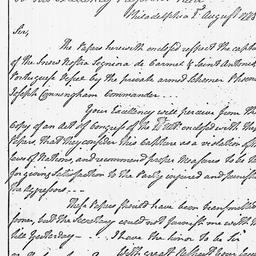 Philadelphia 5th August 178
Sir,
The Papers herewith enclosed respect the captu
of the Snow Nostra Signiora de Carmel & Saint Antonio
Portuguese Vessel by the private armed Schooner Phoenix
Joseph Cunningham Commander.
Your Excellency will perceive from the
Copy of an Act of Congress of the Ult. enclosed with thes
Papers, that they consider this Capture as a violation of the
laws of Nations, and recommend proper Measures to be ta
for giving Satisfaction to the Party injured and punish
the Aggressors
These Papers should have been transmitted
fore, but the Secretary could not furnish me with th
till Yesterday — I have the honor to be Sir
With great Respect your